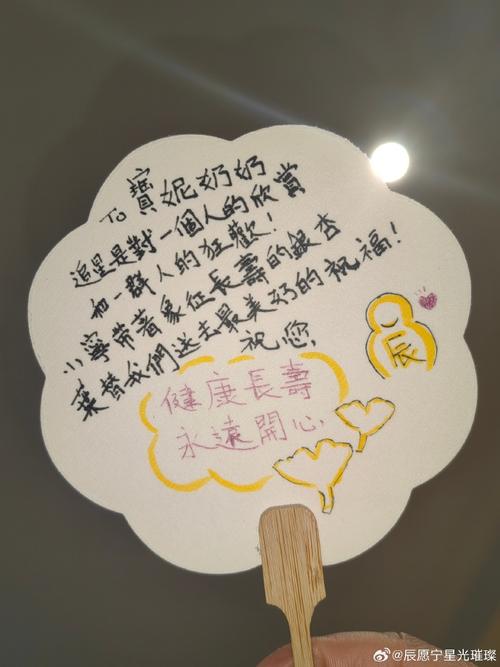 To 寶妮奶奶
追星是對一個人的欣賞
和一群人的狂歡！
小寧带著象征長壽的銀杏
葉替我們送去最美好的祝福！
祝您
健康長壽
永遠開心
辰
@辰愿宁星光璀璨